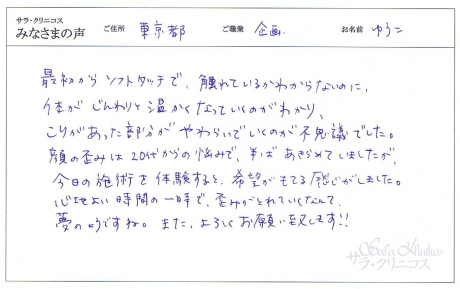 サラ・クリニコス
みなさまの声 ご住所 東京都 ご職業 企画. お名前 ゆうこ
最初からソフトタッチで、触れているかわからないのに、
体がじんわりと温かくなっていくのがわかり、
こりがあった部分がやわらいでいくのが不思議でした。
顔の歪みは20代からの悩みで、半ばあきらめていましたが、
今日の施術を体験すると、希望がもてる感じがしました。
心地よい時間の一時で、歪みがとれていくなんて、
夢のようですね。また、よろしくお願い致します!!
Sala Klinikos
サラ・クリニコス